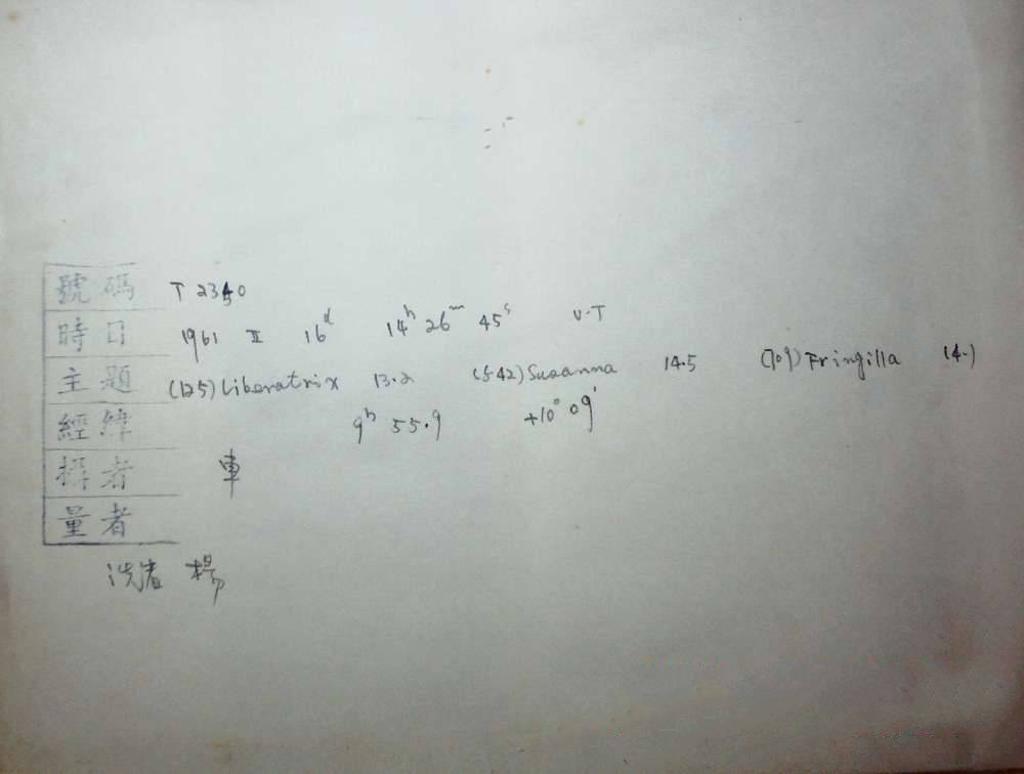 號碼 T 2340
時日 1961 II 16ᵈ 14ʰ 26ᵐ 45ˢ U.T
主題 (125) Liberatrix 13.2 (542) Susanna 14.5 (709) Fringilla 14.)
經緯 9ʰ 55.9 +10° 09′
攝者 車
量者
洗者 楊